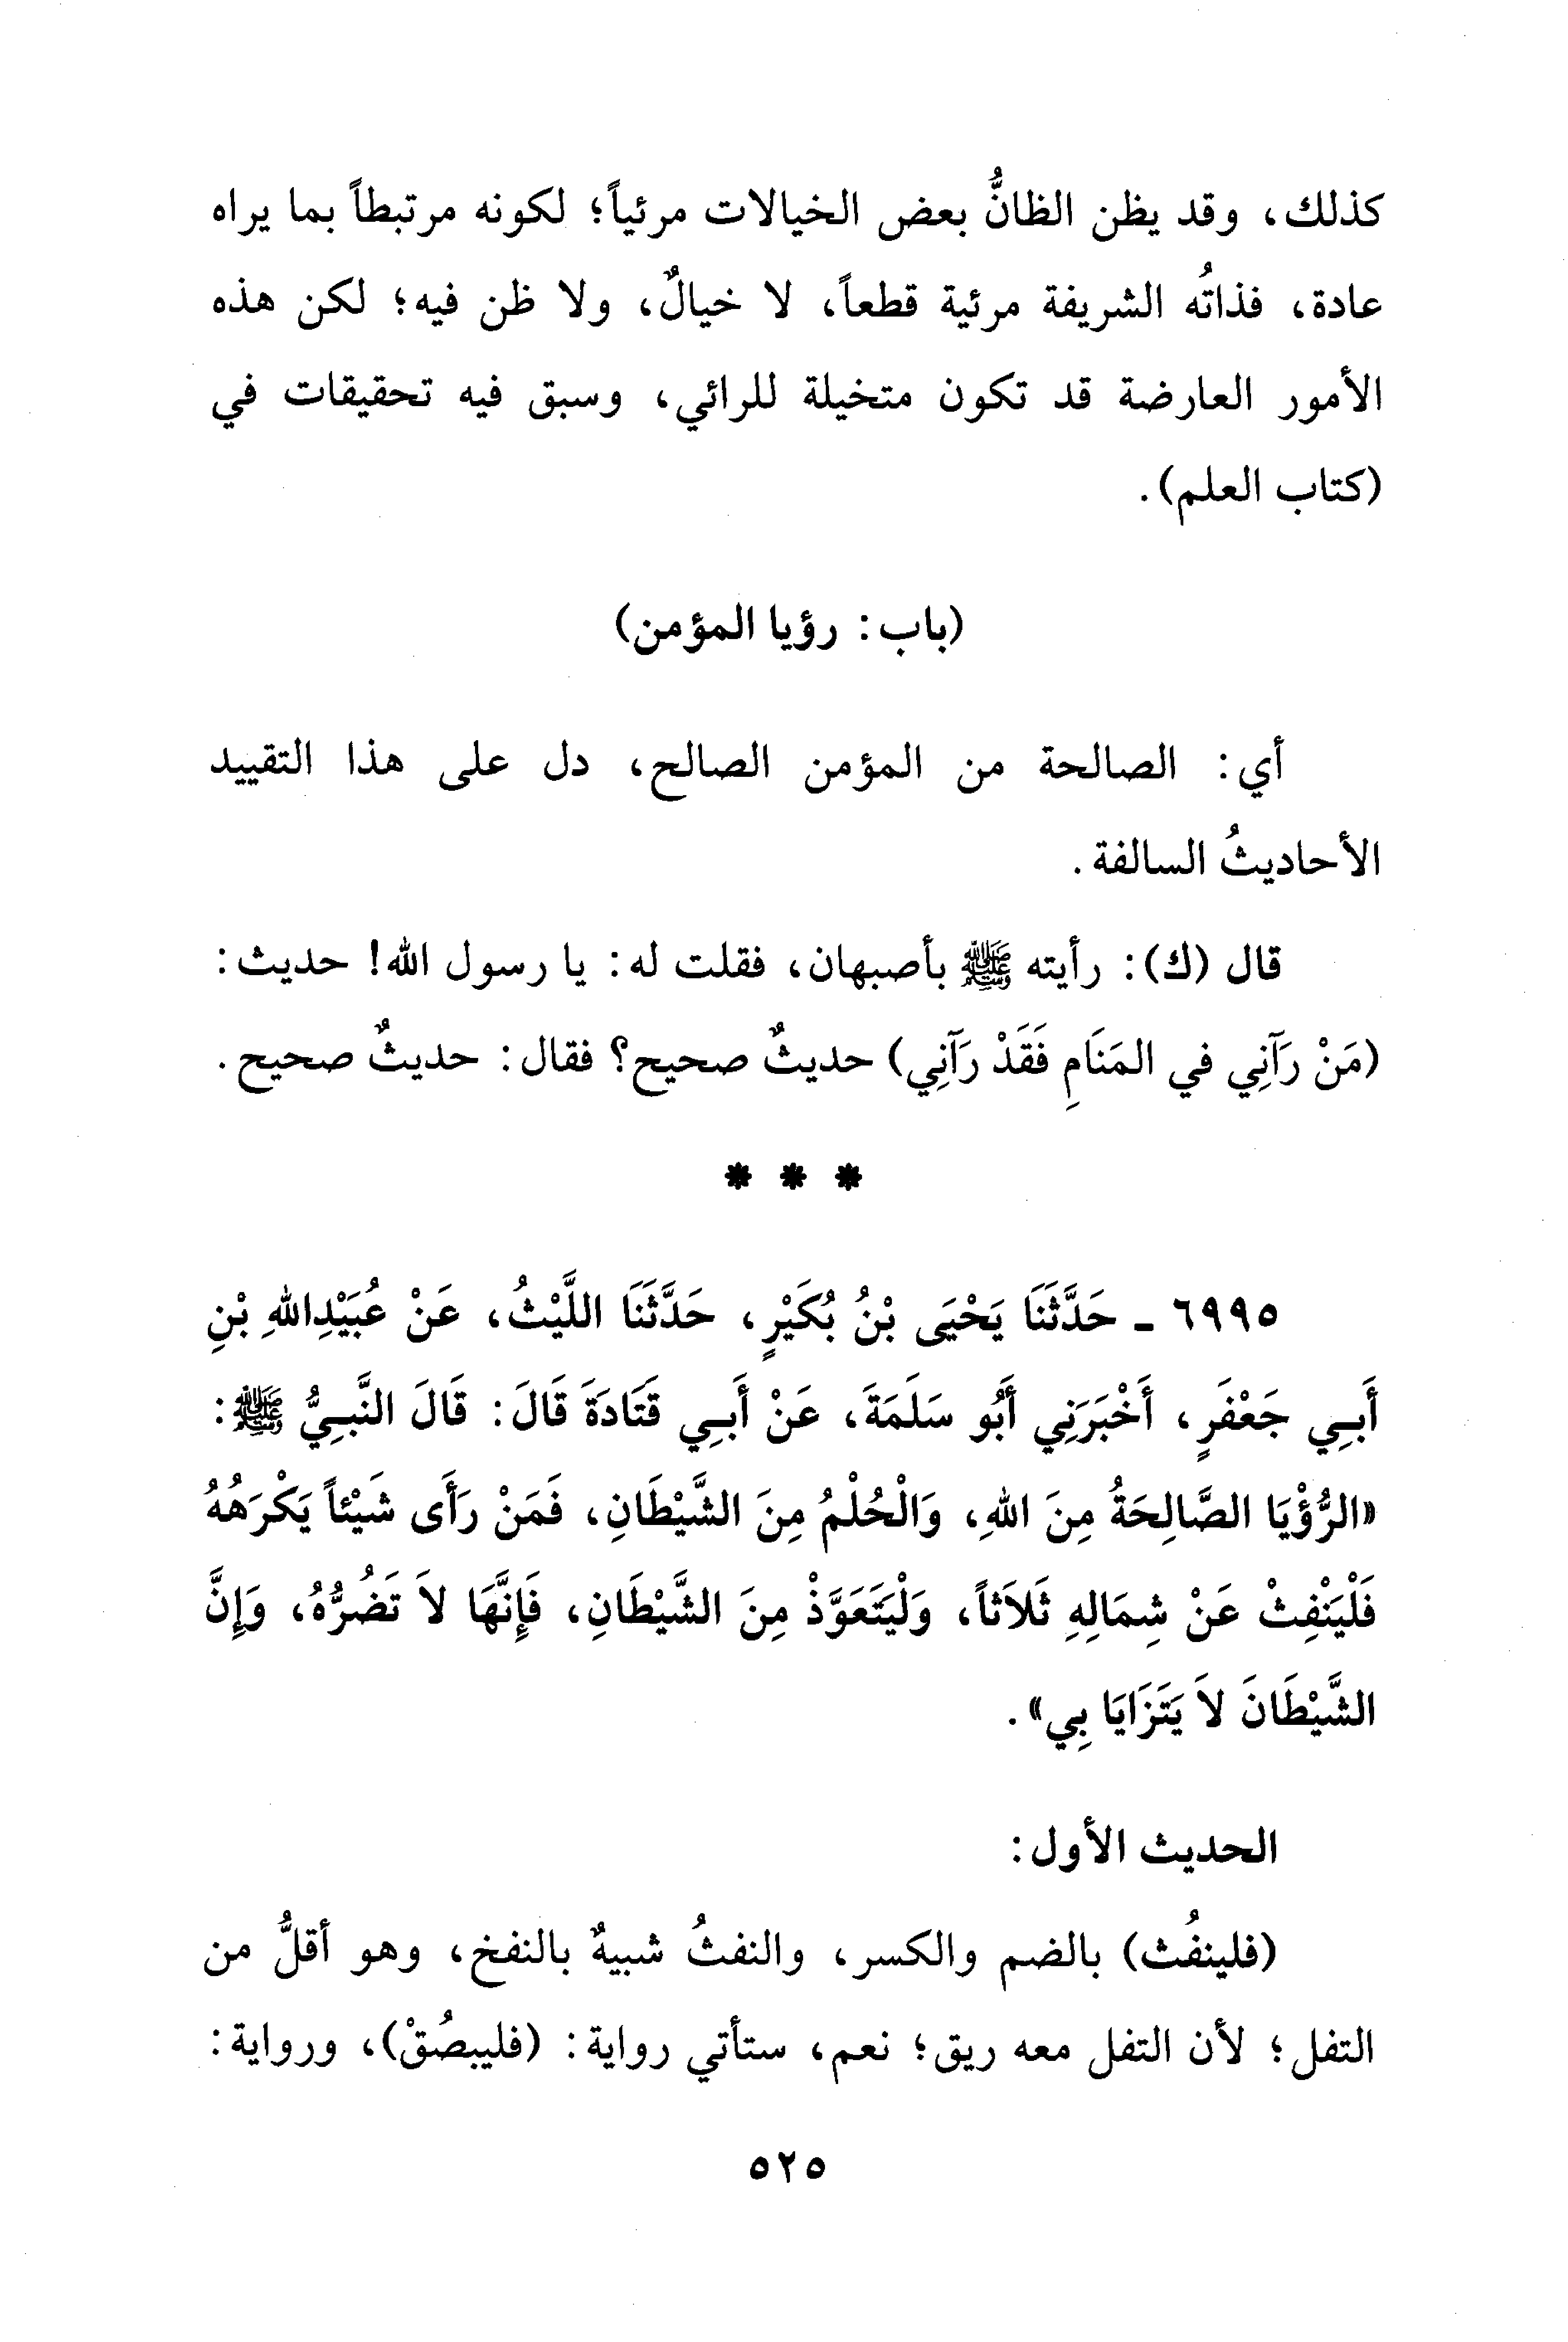 كذلك، وقد يظن الظانُّ بعض الخيالات مرئياً؛ لكونه مرتبطاً بما يراه
عادة، فذاتُه الشريفة مرئية قطعاً، لا خيالٌ، ولا ظن فيه؛ لكن هذه
الأمور العارضة قد تكون متخيلة للرائي، وسبق فيه تحقيقات في
(كتاب العلم).
(باب: رؤيا المؤمن)
أي: الصالحة من المؤمن الصالح، دل على هذا التقييد
الأحاديثُ السالفة.
قال (ك): رأيته ﷺ بأصبهان، فقلت له: يا رسول الله! حديث:
(مَنْ رَآنِي في المَنَامِ فَقَدْ رَآنِي) حديثٌ صحيح؟ فقال: حديثٌ صحيح.
* * *
٦٩٩٥ - حَدَّثَنَا يَحْيَى بْنُ بُكَيْرٍ، حَدَّثَنَا اللَّيْثُ، عَنْ عُبَيْدِاللهِ بْنِ
أَبِي جَعْفَرٍ، أَخْبَرَنِي أَبُو سَلَمَةَ، عَنْ أَبِي قَتَادَةَ قَالَ: قَالَ النَّبِيُّ ﷺ:
«الرُّؤْيَا الصَّالِحَةُ مِنَ اللهِ، وَالْحُلْمُ مِنَ الشَّيْطَانِ، فَمَنْ رَأَى شَيْئاً يَكْرَهُهُ
فَلْيَنْفِثْ عَنْ شِمَالِهِ ثَلاَثاً، وَلْيَتَعَوَّذْ مِنَ الشَّيْطَانِ، فَإِنَّهَا لاَ تَضُرُّهُ، وَإِنَّ
الشَّيْطَانَ لاَ يَتَزَايَا بِي».
الحديث الأول:
(فلينفُث) بالضم والكسر، والنفثُ شبيهٌ بالنفخ، وهو أقلُّ من
التفل؛ لأن التفل معه ريق؛ نعم، ستأتي رواية: (فليبصُقْ)، ورواية:
٥٢٥